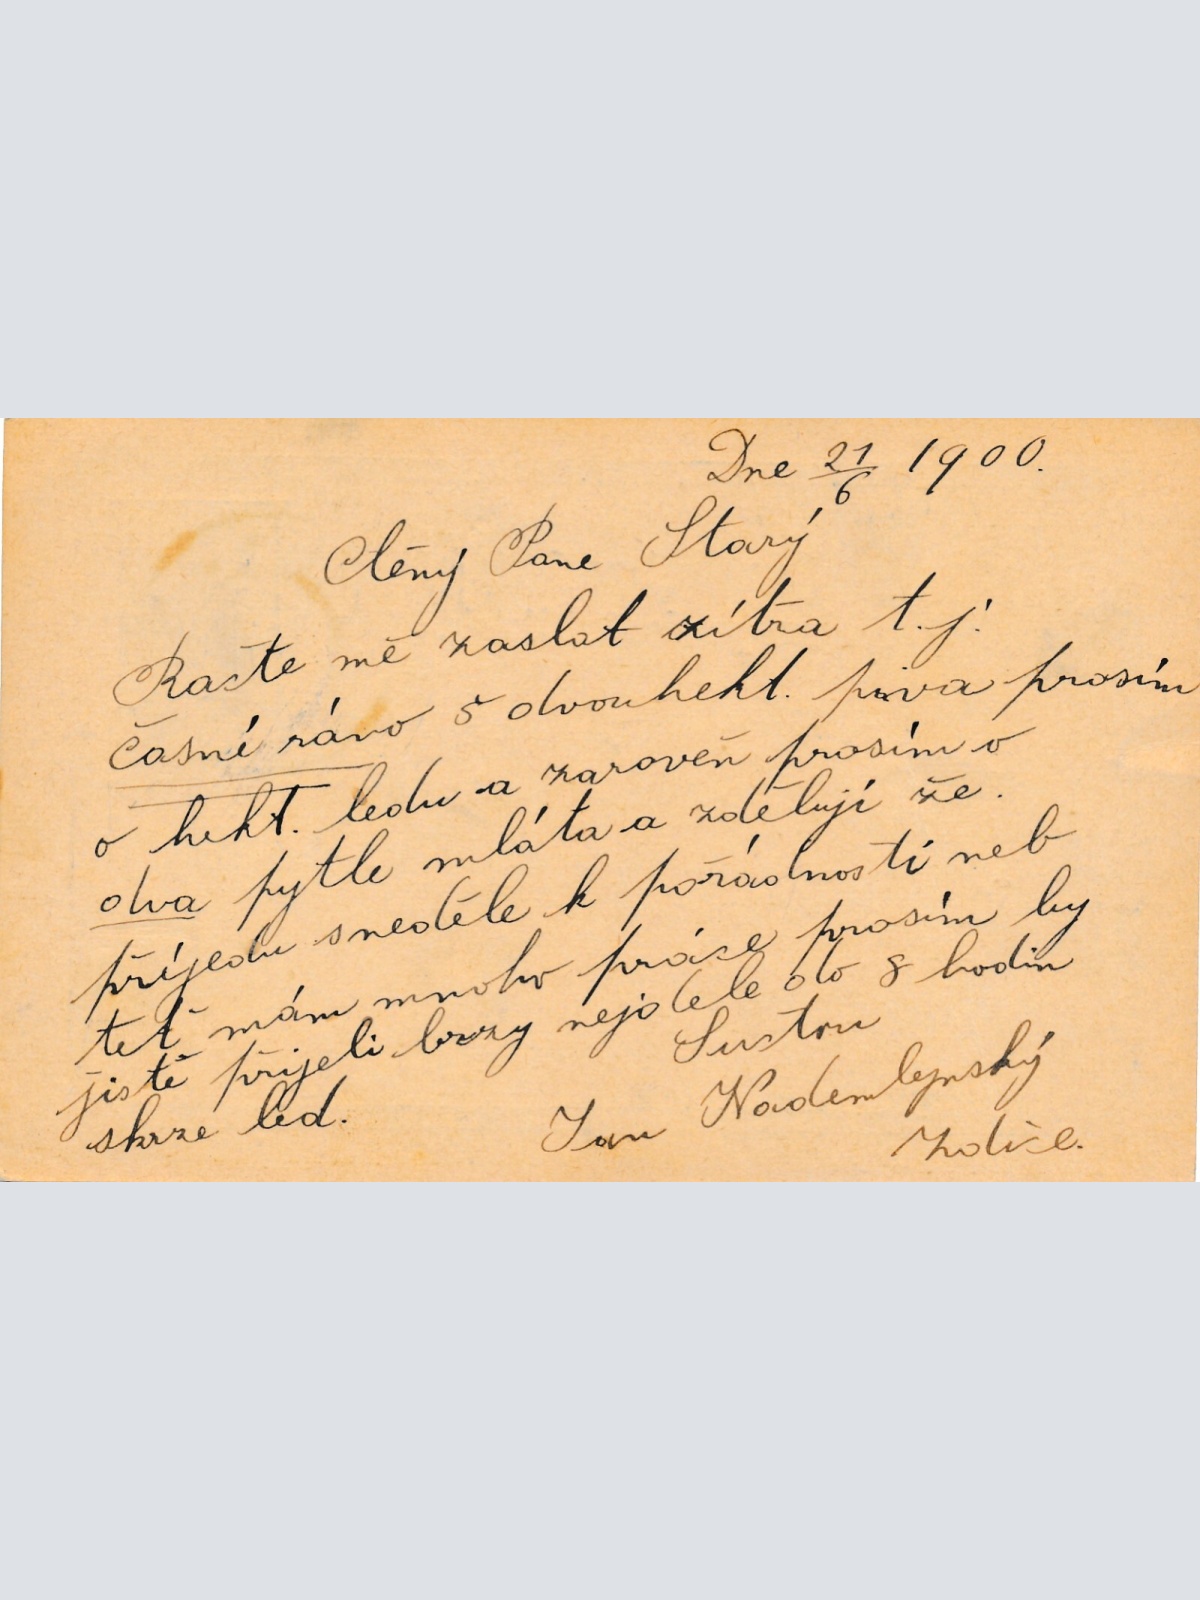 Dne 21/6 1900.
Ctěný Pane Starý
Račte mě zaslat zítra t. j.
časně ráno 5 dvouhekt. piva prosím
o hekt. ledu a zaroveň prosím o
dva pytle mláta a zdělují že.
přijedu sneděle k pořádnosti neb
teť mám mnoho práce prosím by
jistě přijeli brzy nejdéle do 8 hodin
skrze led.
Sustou
Jan Nademlynský
Zdice.